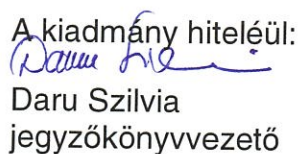 A kiadmány hiteléül:
Daru Szilvia
jegyzőkönyvvezető